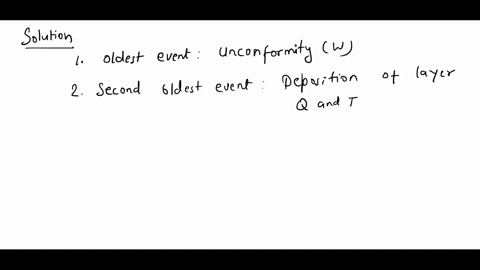 Solution
1. oldest event : Unconformity (W)
2. Second oldest event : Deposition of layer
Q and T